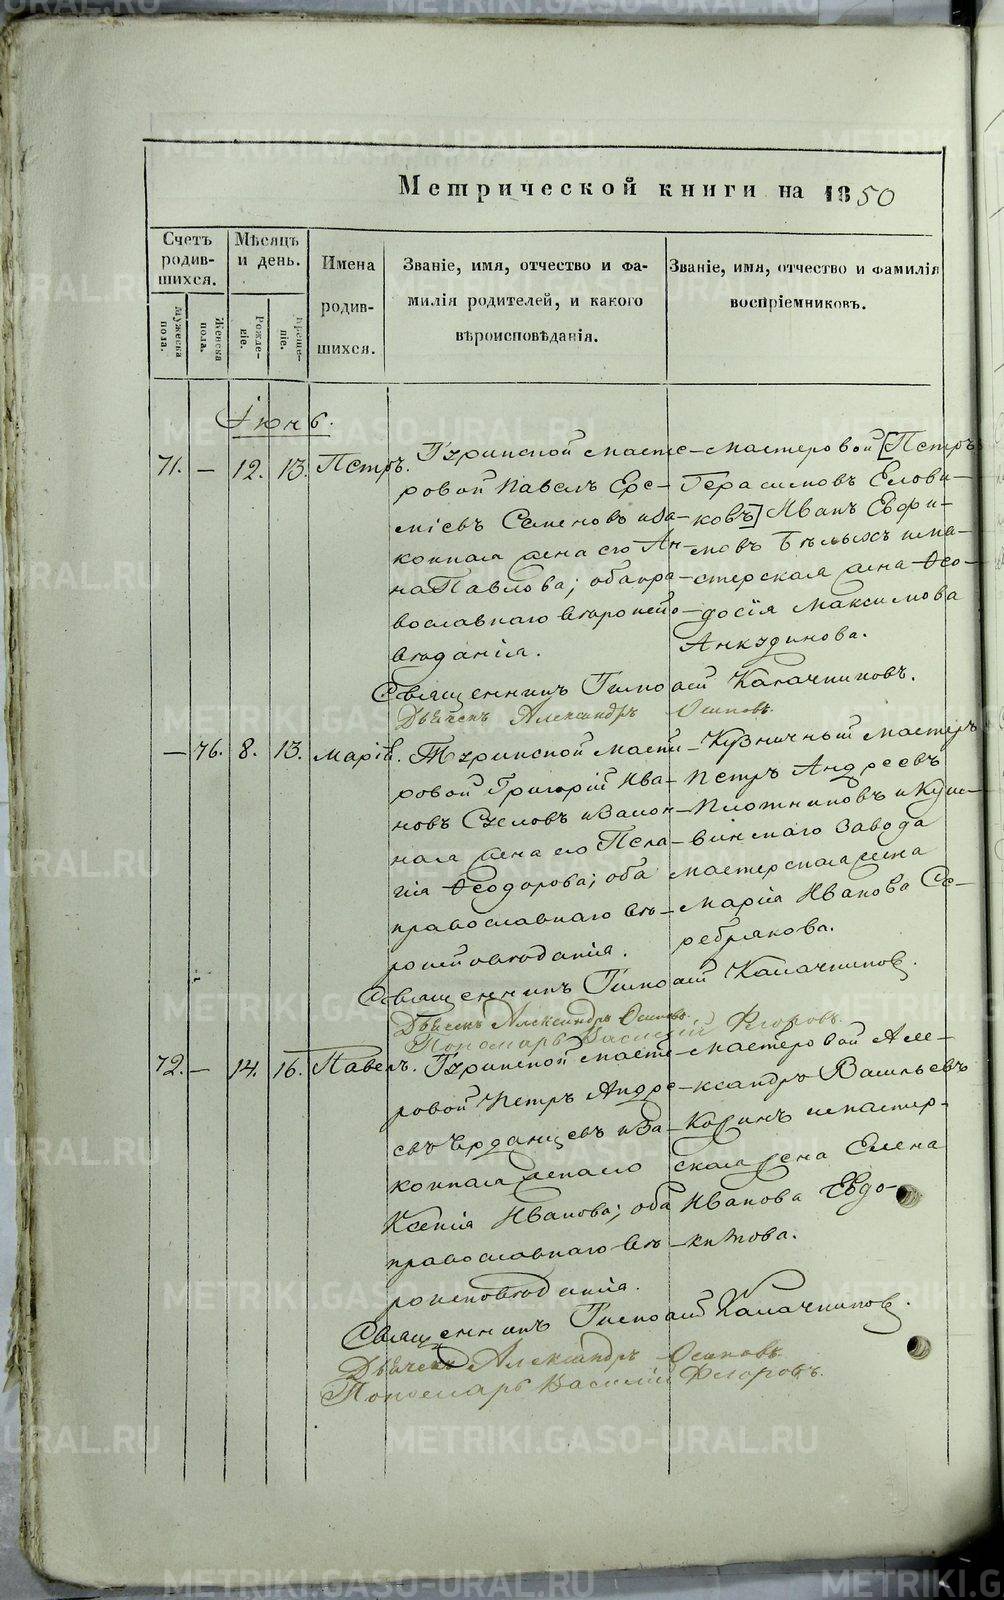 Метрической книги на 1850
Счетъ родив-шихся.
Мужеска пола.
Женска пола.
Мѣсяцъ и день.
Рожде-ніе.
Креще-ніе.
Имена родив-шихся.
Званіе, имя, отчество и фа-
милія родителей, и какого
вѣроисповѣданія.
Званіе, имя, отчество и фамилія
воспріемниковъ.
Іюнь.
71. — 12. 13. Петръ.
Туринской масте-
ровой Павелъ Ере-
мѣевъ Семеновъ и за-
конная жена его Ан-
на Павлова; оба пра-
вославнаго вѣроиспо-
вѣданія.
Мастеровой [Петръ
Герасимовъ Елови-
ковъ] Иванъ Евфи-
мовъ Бѣлыхъ и ма-
стерская жена Ѳео-
досія Максимова
Анкудинова.
Священникъ Калачниковъ.
Дьячекъ Александръ Осиповъ
— 76. 8. 13. Марія.
Туринской масте-
ровой Григорій Ива-
новъ и закон-
ная жена его Пела-
гія Ѳеодорова; оба
православнаго вѣ-
роисповѣданія.
Кузничный мастеръ
Петръ Андреевъ
Плотниковъ и Куш-
винскаго завода
мастерская жена
Марія Иванова Се-
ребрякова.
Священникъ Калачниковъ.
Дьячекъ Александръ Осиповъ
Пономарь Василій Флоровъ.
72. — 14. 16. Павелъ.
Туринской масте-
ровой Петръ Андре-
евъ и за-
конная жена его
Ксенія Иванова; оба
православнаго вѣ-
роисповѣданія.
Мастеровой Але-
ксандръ Васильевъ
и мастер-
ская жена Елена
Иванова Евдо-
кимова.
Священникъ Калачниковъ.
Дьячекъ Александръ Осиповъ
Пономарь Василій Флоровъ.
METRIKI.GASO-URAL.RU